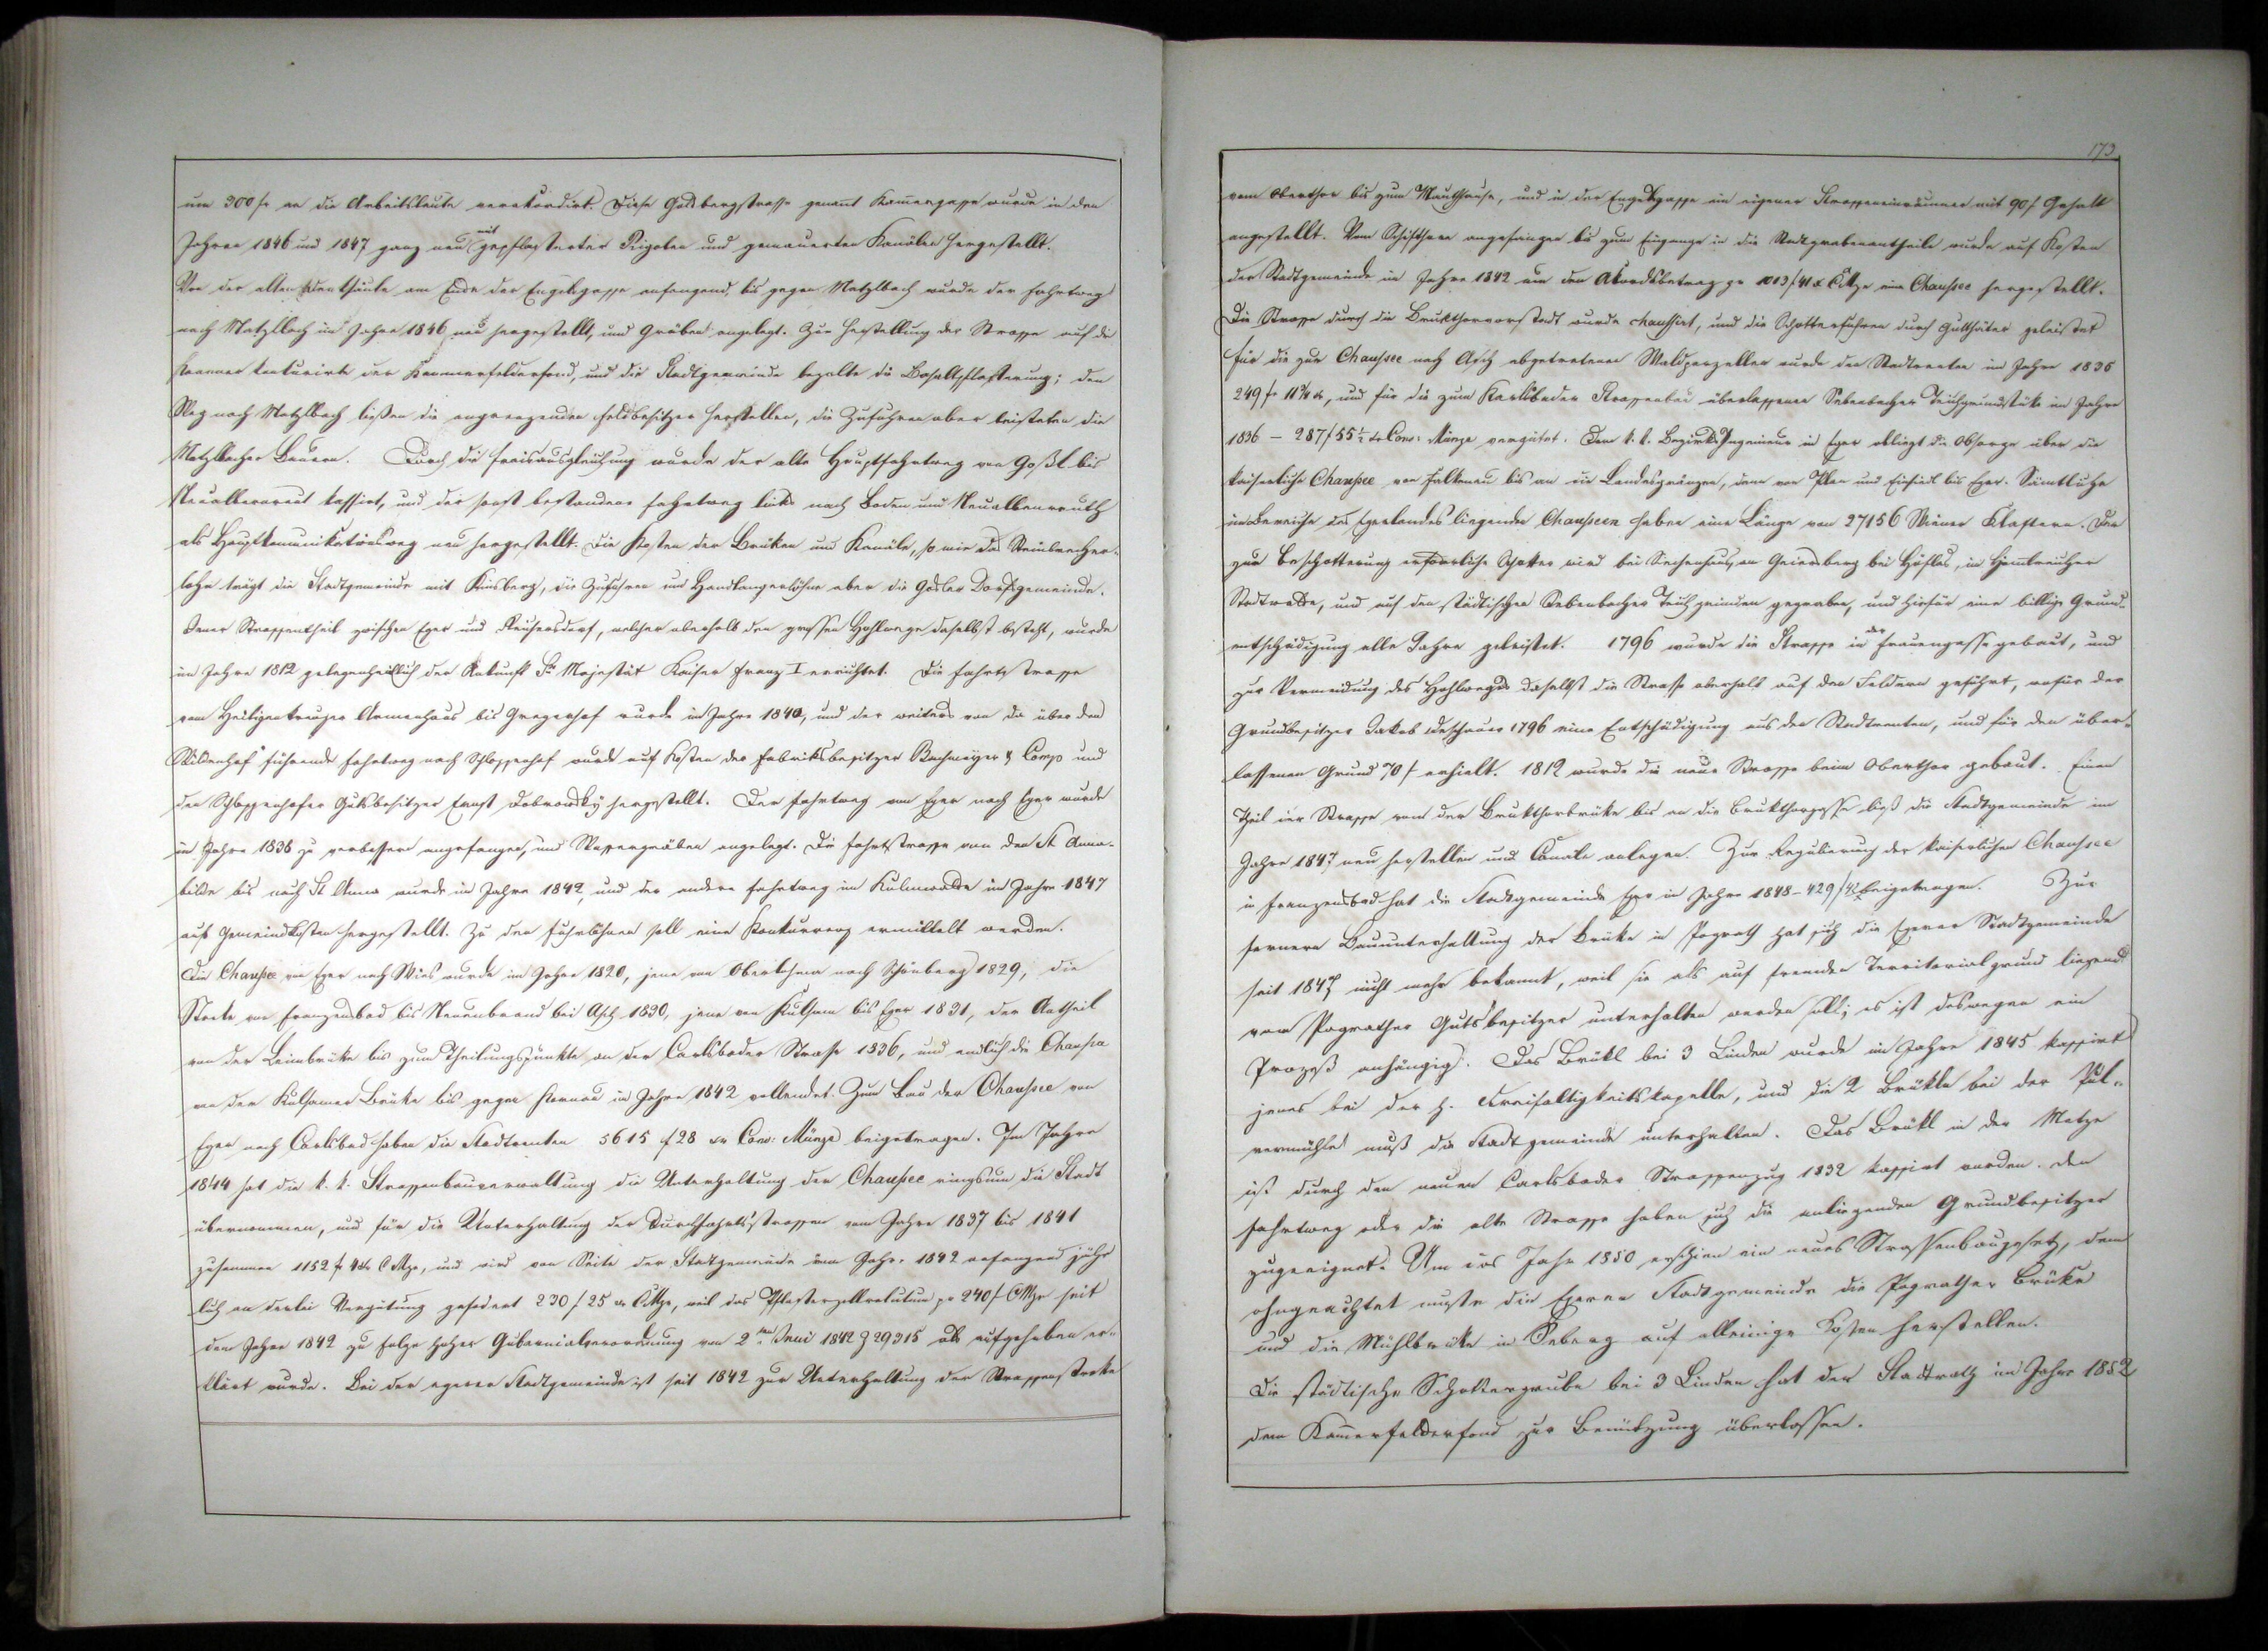 um 300 fr an die Arbeitsleute verakordirt. Diese Goldbergstrasse genannt Kam̄ergasse wurde in den
Jahren 1846 und 1847 ganz neu mit gepflasterten Rigolen und gemauerten Kanälen hergestellt.
Von der alten am Ende der Engelsgasse anfangend, bis gegen Matzlbach wurde der Fahrtweg
nach Matzlbach im Jahre 1846 neu hergestellt, und Gräben angelegt. Zur Herstellung der Strasse auf die
konkurirte der Kammerfelderfond, und die Stadtgemeinde bezalte die Basaltpflasterung; den
Weg nach Matzlbach ließen die angrenzenden Feldbesitzer herstellen, die Zufuhren aber leisteten die
Matzlbacher Bauern. Durch die Fraisausgleichung wurde der alte Hauptfahrtweg von Goßl bis
Neualbenreut kassirt, und der sonst bestandene Fahrtweg links nach Boden und Neualbenreuth
als Hauptkomunikationsweg neu hergestellt. Die Kosten der Brüken und Kanäle, so wie das Steinbrecher-
lohn trägt die Stadtgemeinde mit Kinsberg, die Zufuhren und Handlangerlöhne aber die Goßler Dorfsgemeinde.
Jener Strassentheil zwischen Eger und , welcher oberhalb dem grossen Hohlwege daselbst besteht, wurde
im Jahre 1812 gelegenheitlich der Ankunft Sr Majestät Kaiser Franz I errichtet. Die Fahrtstrasse
vom Heiligenkreuzer Armenhaus bis Gregerhof wurde im Jahre 1840, und der weiters von da über den
Wildenhof führende Fahrtweg nach Schloppenhof wurde auf Kosten der Fabriksbesitzer Bachmayer & Comp und
des Schloppenhofer Gutsbesitzer Ernst Dobrowsky hergestellt. Der Fahrtweg von Eger nach Eger wurde
im Jahre 1838 zu verbessern angefangen, und Wassergräben angelegt. Die Fahrtstrasse von den St Anna-
bilde bis nach St Anna wurde im Jahre 1842, und der andere Fahrtweg im Kulmwalde im Jahre 1847
auf Gemeindkosten hergestellt. Zu den Fuhrlöhnen soll eine Konkurrenz ermittelt werden.
Die Chaussee von Eger nach Wies wurde im Jahre 1820, jene von Oberlohma nach Schönberg 1829, die
Streke von Franzensbad bis Neuenbrand bei Asch 1830, jene von Kulsam bis Eger 1831, der Antheil
von der Leimbrüke bis zum Theilungspunkte an der Carlsbader Strasse 1836, und endlich die Chaussee
von der Kulsamer Brüke bis gegen im Jahre 1842 vollendet. Zum Bau der Chaussee von
Eger nach Carlsbad haben die Stadtrenten 5615 f 28 xr Conv: Münze beigetragen. Im Jahre
1844 hat die k. k. Strassenbauverwaltung die Unterhaltung der Chaussee ringsum die Stadt
übernommen, und für die Unterhaltung der Durchfahrtsstrassen vom Jahre 1837 bis 1841
zusammen 1152 fr 4 xr CMze, und wird von Seite der Stadtgemeinde vom Jahre 1842 anfangend jähr
lich an derlei Vergütung gefodert 230 f 25 xr CMze, weil das Pflasterzollrelutum pr 240 f CMze seit
dem Jahre 1842 zu Folge hoher Gubernialverordnung vom 2ten Juni 1842 Z 29315 als aufgehoben er-
klärt wurde. Bei der egerer Stadtgemeinde ist seit 1842 zur Unterhaltung der Strassenstreke
173
vom Oberthor bis zum Mauthhause, und in der Engelsgasse ein eigener Strasseneinräumer mit 90 f Gehalt
angestellt. Vom Schifthore angefangen bis zum Eingange in die Stadtgrabenantheile wurde auf Kosten
der Stadtgemeinde im Jahre 1842 um den Akordsbetrag pr 1013 f 41 x CMze eine Chaussee hergestellt.
Die Strasse durch die Brukthorvorstadt wurde chaussirt, und die Schotterfuhren durch Gutthäter geleistet
für die zur Chaussee nach Asch abgetretenen Waldparzellen wurde den Stadtrenten im Jahre 1835
249 fr 11¾ xr, und für die zum Karlsbader Strassenbau überlassenen Sebenbacher Teichgrundstüke im Jahre
1836 – 287 f 55½ xr Conv: Münze vergütet. Dem k. k. Bezirks Ingenieur in Eger obliegt die Obsorge über die
kaiserliche Chaussee von Falkenau bis an die Landesgränzen, dann von Plan und Einsiedl bis Eger. Sämtliche
im Bereiche des Egerlandes liegenden Chausseen haben eine Länge von 27156 Wiener Klaftern. Der
zur Beschotterung erforderliche Schotter wird bei Siechenhaus, am Geiersberg bei Höflas, im
Stadtwalde, und auf den städtischen Sebenbacher Teichgründen gegraben, und hiefür eine billige Grund-
entschädigung alle Jahre geleistet. 1796 wurde die Strasse in der Frauengasse gebaut, und
zur Vermeidung des Hohlweges daselbst die Strasse oberhalb auf den Feldern geführt, wofür der
Grundbesitzer Jakob 1796 eine Entschädigung aus den Stadtrenten, und für den über-
lassenen Grund 70 f erhielt. 1812 wurde die neue Strasse beim Oberthor gebaut. Einen
Theil der Strasse von der Brukthorbrüke bis an die Brukthorgasse ließ die Stadtgemeinde im
Jahre 1847 neu herstellen und Canäle anlegen. Zur Regulierung der kaiserlichen Chaussee
in Franzensbad hat die Stadtgemeinde Eger im Jahre 1848 – 429 f 42 x beigetragen. Zur
fernern Bauunterhaltung der Brüke in Pograth hat sich die Egerer Stadtgemeinde
seit 1847 nicht mehr bekannt, weil sie als auf fremden Territorialgrund liegend
vom Pograther Gutsbesitzer unterhalten werden soll; es ist deswegen ein
Prozeß anhängig. Das Brükl bei 3 Linden wurde im Jahre 1845 kassirt
jenes bei der h. Dreifaltigkeitskapelle, und die 2 Brükln bei der Pul-
vermühle muß die Stadtgemeinde unterhalten. Das Brükl in der Metze
ist durch den neuen Carlsbader Strassenzug 1832 kassirt worden. Den
Fahrtweg oder die alte Strasse haben sich die anliegenden Grundbesitzer
zugeeignet. Um das Jahr 1850 erschien ein neues Strassenbaugesetz, dem
ohngeachtet mußte die Egerer Stadtgemeinde die Pograther Brüke
und die Mühlbrüke in Seeberg auf alleinige Kosten herstellen.
Die städtische Schottergrube bei 3 Linden hat der Stadtrath im Jahre 1852
dem Kam̄erfelderfond zur Benützung überlassen.